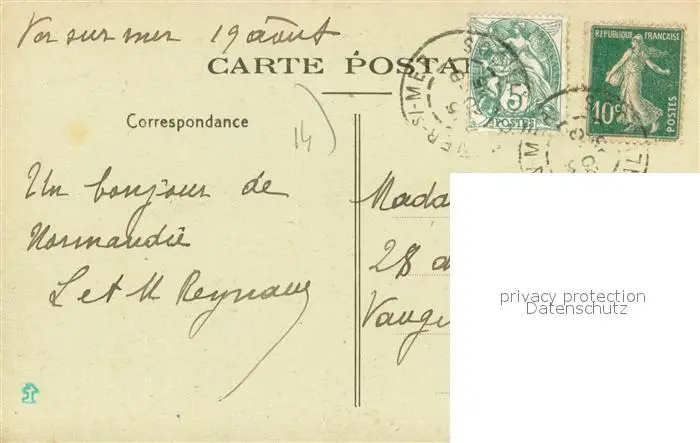 Ver sur mer 19 août
CARTE POSTA
5c
POSTES
REPUBLIQUE FRANÇAISE
10c
POSTES
VER-S/-MER
Correspondance
14
Un bonjour de
Normandie
L et M Reynaud
Mada
28 d
Vaugi
privacy protection
Datenschutz